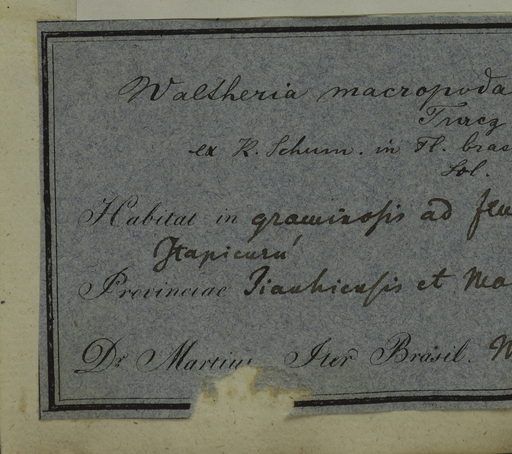 Waltheria macropoda
Turcz
ex K. Schum. in Fl. bras
Sol.
Habitat in graminosis ad flu
Itapicurú
Provinciae Piauhiensis et Ma
Dr Martius Iter Brasil.